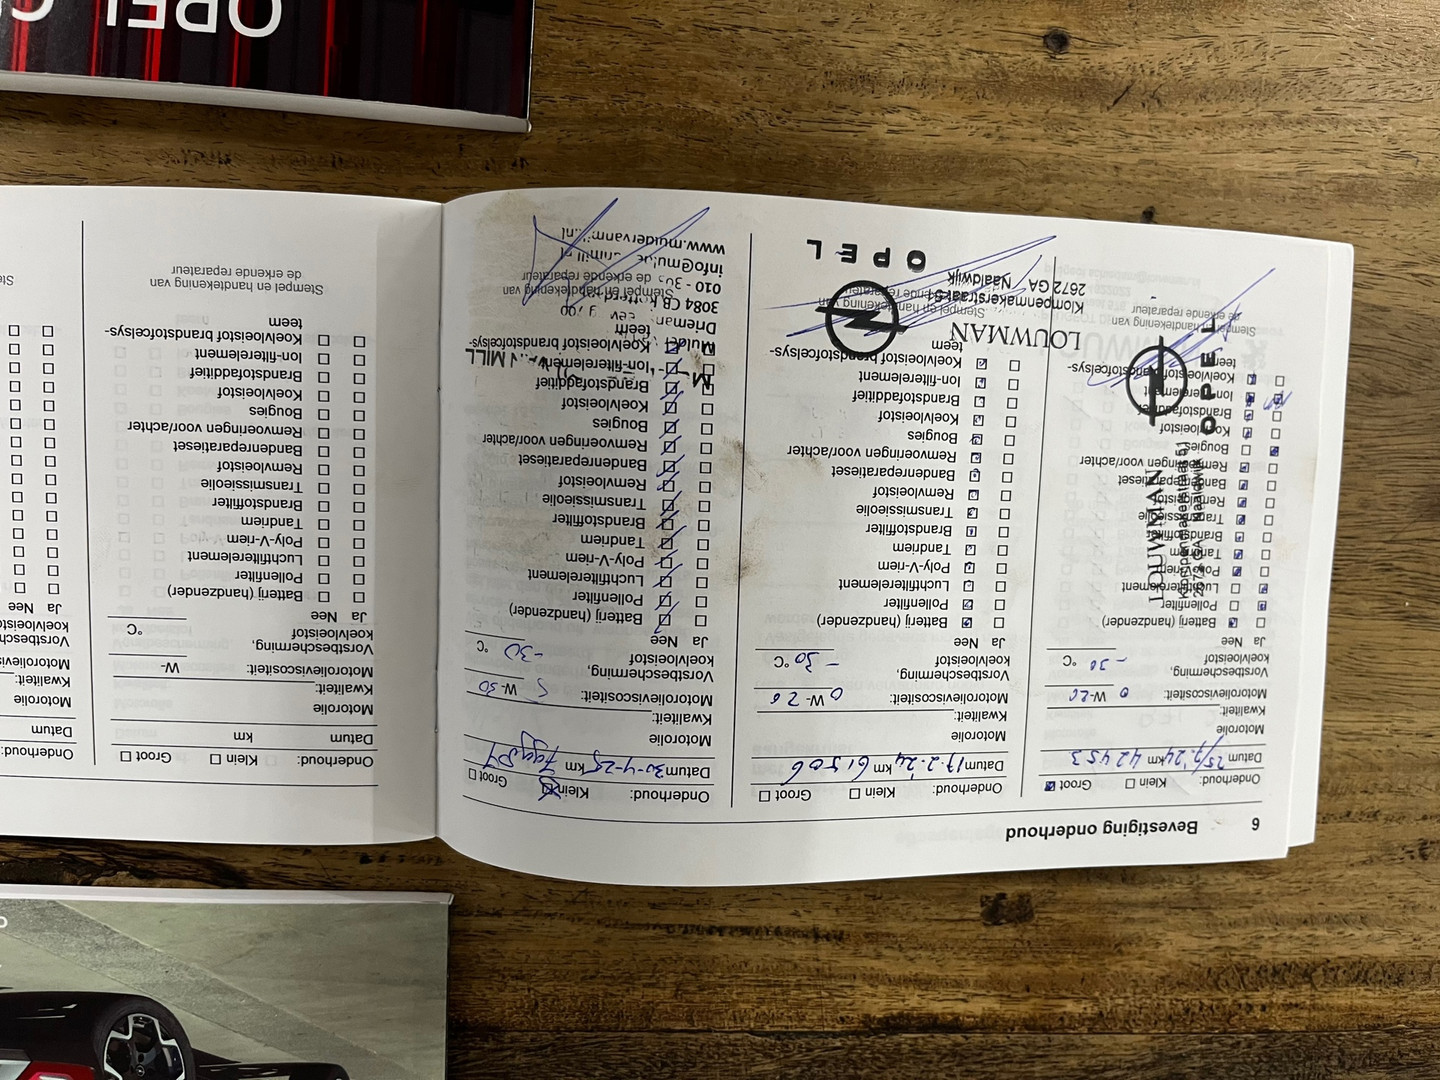 OPEL
6 Bevestiging onderhoud
Onderhoud: Klein Groot
Datum 25/1.'24 km 42453
Motorolie
Kwaliteit:
Motorolieviscositeit: 0 W-20
Vorstbescherming,
koelvloeistof -30 °C
Ja Nee
Batterij (handzender)
Pollenfilter
Luchtfilterelement
Poly-V-riem
Tandriem
Brandstoffilter
Transmissieolie
Remvloeistof
Bandenreparatieset
Remvoeringen voor/achter
Bougies
Koelvloeistof
Brandstofadditief
Ion-filterelement
Koelvloeistof brandstofcelsys-
teem
Stempel en handtekening van
de erkende reparateur
LOUWMAN
Klompenmakerstraat 51
2672 GA Naaldwijk
OPEL
Onderhoud: Klein Groot
Datum 17.2.'24 km 61506
Motorolie
Kwaliteit:
Motorolieviscositeit: 0 W-20
Vorstbescherming,
koelvloeistof -30 °C
Ja Nee
Batterij (handzender)
Pollenfilter
Luchtfilterelement
Poly-V-riem
Tandriem
Brandstoffilter
Transmissieolie
Remvloeistof
Bandenreparatieset
Remvoeringen voor/achter
Bougies
Koelvloeistof
Brandstofadditief
Ion-filterelement
Koelvloeistof brandstofcelsys-
teem
Stempel en handtekening van
de erkende reparateur
LOUWMAN
Klompenmakerstraat 51
2672 GA Naaldwijk
OPEL
Onderhoud: Klein Groot
Datum 30-4-25 km
Motorolie
Kwaliteit:
Motorolieviscositeit: 5 W-30
Vorstbescherming,
koelvloeistof -30 °C
Ja Nee
Batterij (handzender)
Pollenfilter
Luchtfilterelement
Poly-V-riem
Tandriem
Brandstoffilter
Transmissieolie
Remvloeistof
Bandenreparatieset
Remvoeringen voor/achter
Bougies
Koelvloeistof
Brandstofadditief
Ion-filterelement
Koelvloeistof brandstofcelsys-
teem
Stempel en handtekening van
de erkende reparateur
MILL
3084 CB
010 - 30
Onderhoud: Klein Groot
Datum km
Motorolie
Kwaliteit:
Motorolieviscositeit: W-
Vorstbescherming,
koelvloeistof °C
Ja Nee
Batterij (handzender)
Pollenfilter
Luchtfilterelement
Poly-V-riem
Tandriem
Brandstoffilter
Transmissieolie
Remvloeistof
Bandenreparatieset
Remvoeringen voor/achter
Bougies
Koelvloeistof
Brandstofadditief
Ion-filterelement
Koelvloeistof brandstofcelsys-
teem
Stempel en handtekening van
de erkende reparateur
Onderhoud:
Datum
Motorolie
Kwaliteit:
Ja Nee